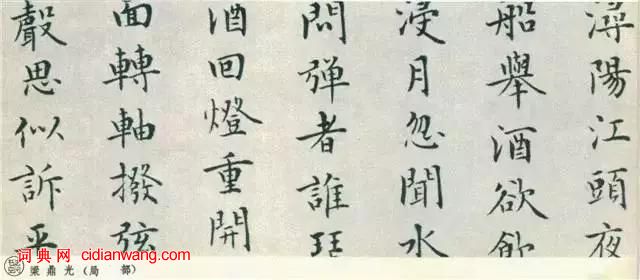 潯陽江頭夜
船舉酒欲飲
浸月忽聞水
問彈者誰琵
酒回燈重開
面轉軸撥弦
聲思似訴平
词典网 cidianwang.com
梁鼎光（局 部）